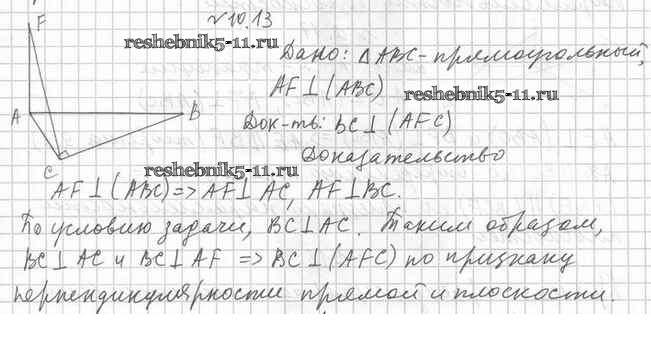 №10.13
F
reshebnik5-11.ru
Дано: △ABC - прямоугольный,
AF⊥(ABC)
reshebnik5-11.ru
A
B
Док-ть: BC⊥(AFC)
C
Доказательство
reshebnik5-11.ru
AF⊥(ABC)=>AF⊥AC, AF⊥BC.
По условию задачи, BC⊥AC. Таким образом,
BC⊥AC и BC⊥AF => BC⊥(AFC) по признаку
перпендикулярности прямой и плоскости.